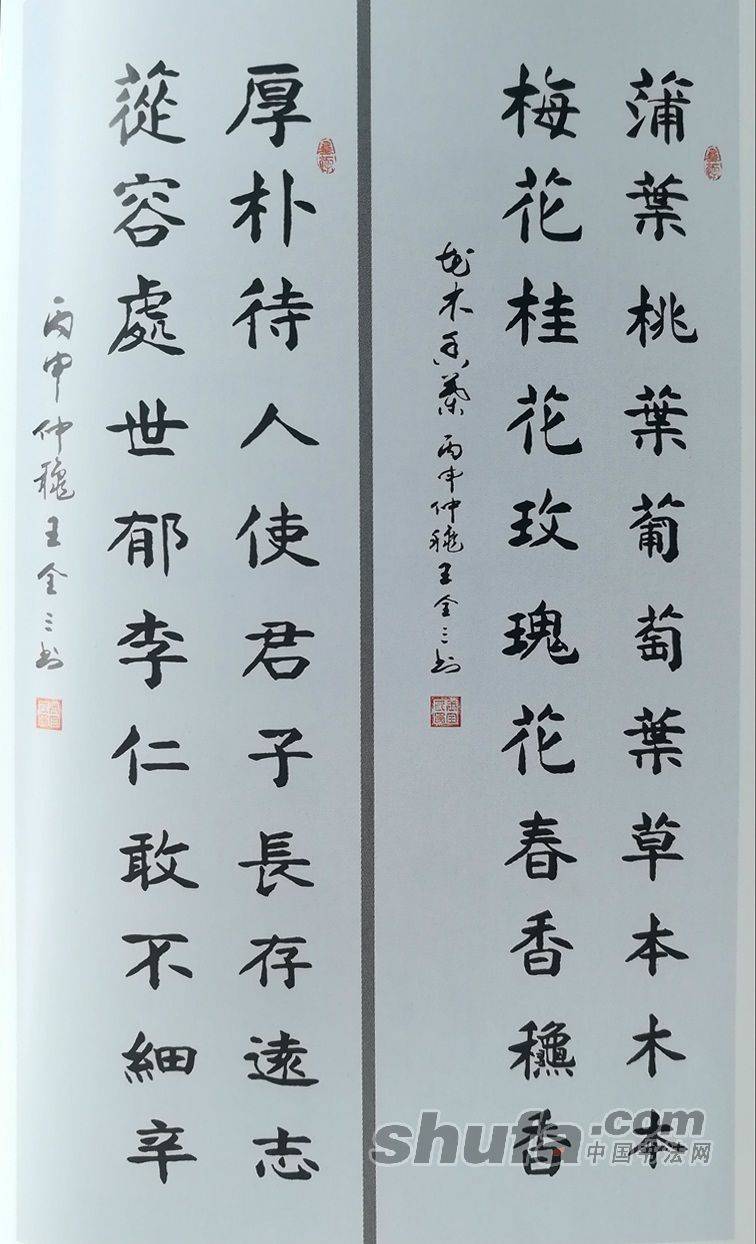 蒲葉桃葉葡萄葉草本木本
梅花桂花玫瑰花春香龝香
丙申仲龝王全三书
厚朴待人使君子長存遠志
蓯容處世郁李仁敢不細辛
丙申仲龝王全三书
shufa.com
中国书法网